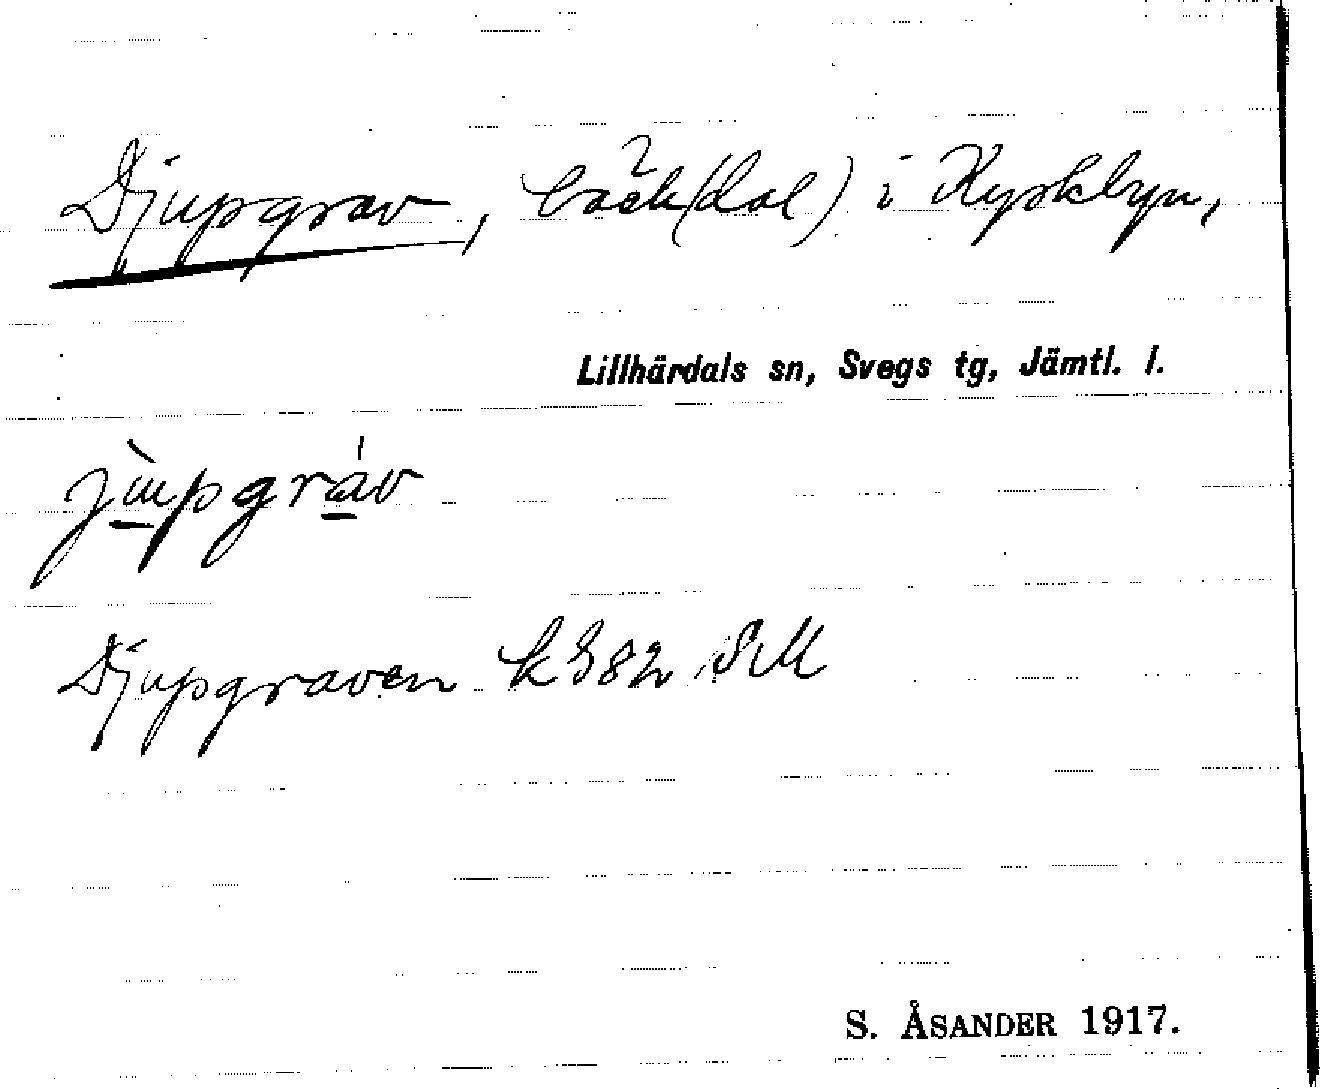 Djupgrav, bäck(dal) i Kyrkbyn,
Lillhärdals sn, Svegs tg, Jämtl. l.
jùpgráv
Djupgraven k 382
S. ÅSANDER 1917.